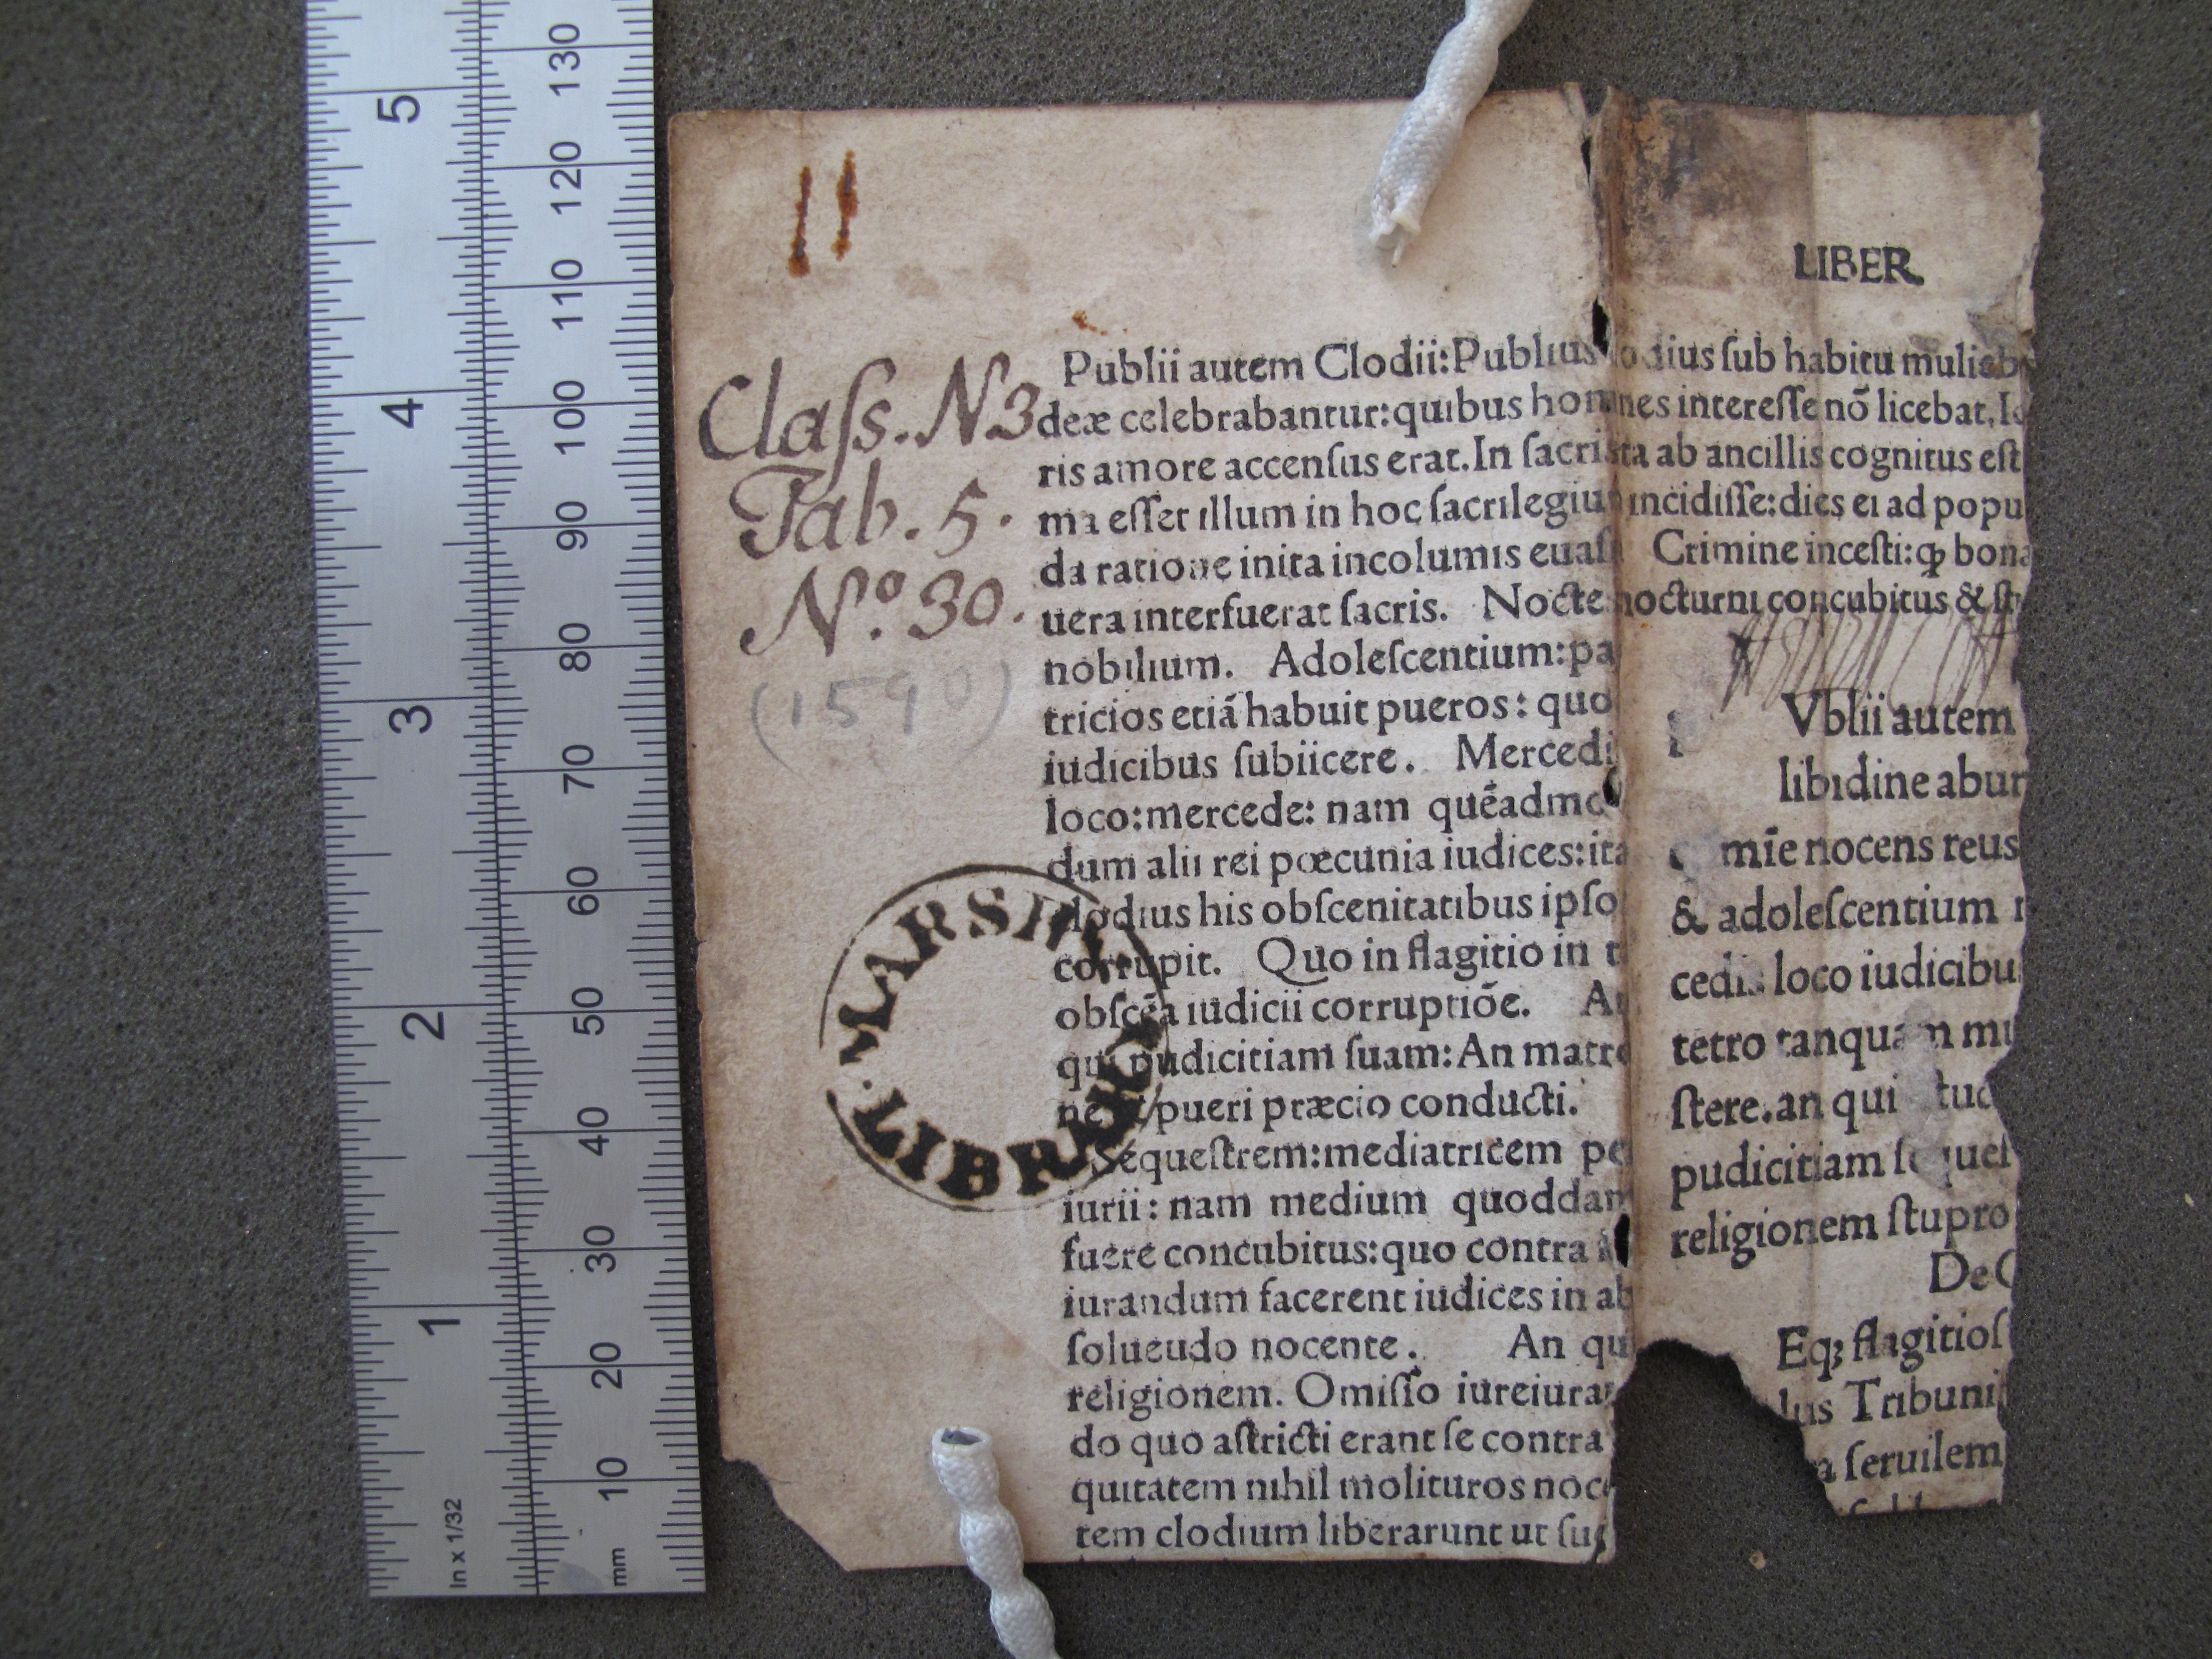 11
LIBER
Class. N3
Tab. 5.
No. 30.
(1590)
MARSH
LIBRARY
Publii autem Clodii:Publius odius ſub habitu muliebr
deæ celebrabantur:quibus homines intereſſe nõ licebat,
ris amore accenſus erat.In ſacri ta ab ancillis cognitus eſt
ma eſſet illum in hoc ſacrilegiu incidiſſe:dies ei ad popu
da ratione inita incolumis euaſ Crimine inceſti:ꝙ bona
uera interfuerat ſacris. Nocte nocturni concubitus & ſt
nobilium. Adoleſcentium:pa
tricios etiã habuit pueros: quo
iudicibus ſubiicere. Mercedi
loco:mercede: nam quẽadmo
dum alii rei pœcunia iudices:ita
clodius his obſcenitatibus ipſo
corrupit. Quo in flagitio in t
obſcẽa iudicii corruptiõe. A
qui pudicitiam ſuam:An matro
ne & pueri præcio conducti.
Sequeſtrem:mediatricem pe
iurii: nam medium quoddam
fuere concubitus:quo contra
iurandum facerent iudices in ab
ſolueudo nocente. An qu
religionem. Omiſſo iureiuran
do quo aſtricti erant ſe contra
quitatem nihil molituros noce
tem clodium liberarunt ut ſu
Vblii autem
libidine abun
mĩe nocens reus
& adoleſcentium
cedis loco iudicibu
tetro tanquam mu
ſtere.an qui
pudicitiam ſequeſ
religionem ſtupro
De C
Eqꝫ flagitioſ
lus Tribuni
a ſeruilem